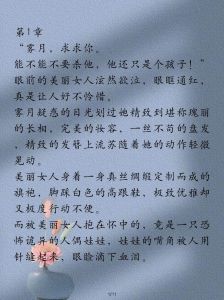 第1章
“雾月，求求你。
能不能不要杀他，他还只是个孩子！”
眼前的美丽女人泫然欲泣，眼眶通红，
真是让人好不怜惜。
雾月疑惑的目光划过她精致到堪称瑰丽
的长相，完美的妆容，一丝不苟的盘发
，精致的发簪上流苏随着她的动作轻微
晃动。
美丽女人身着一身真丝绸缎定制而成的
旗袍，脚踩白色的高跟鞋，极致优雅却
又极度行动不便。
而被美丽女人抱在怀中的，竟是一只恐
怖诡异的人偶娃娃，娃娃的背角被人用
针缝起来，眼睑滴下血泪。
1/11